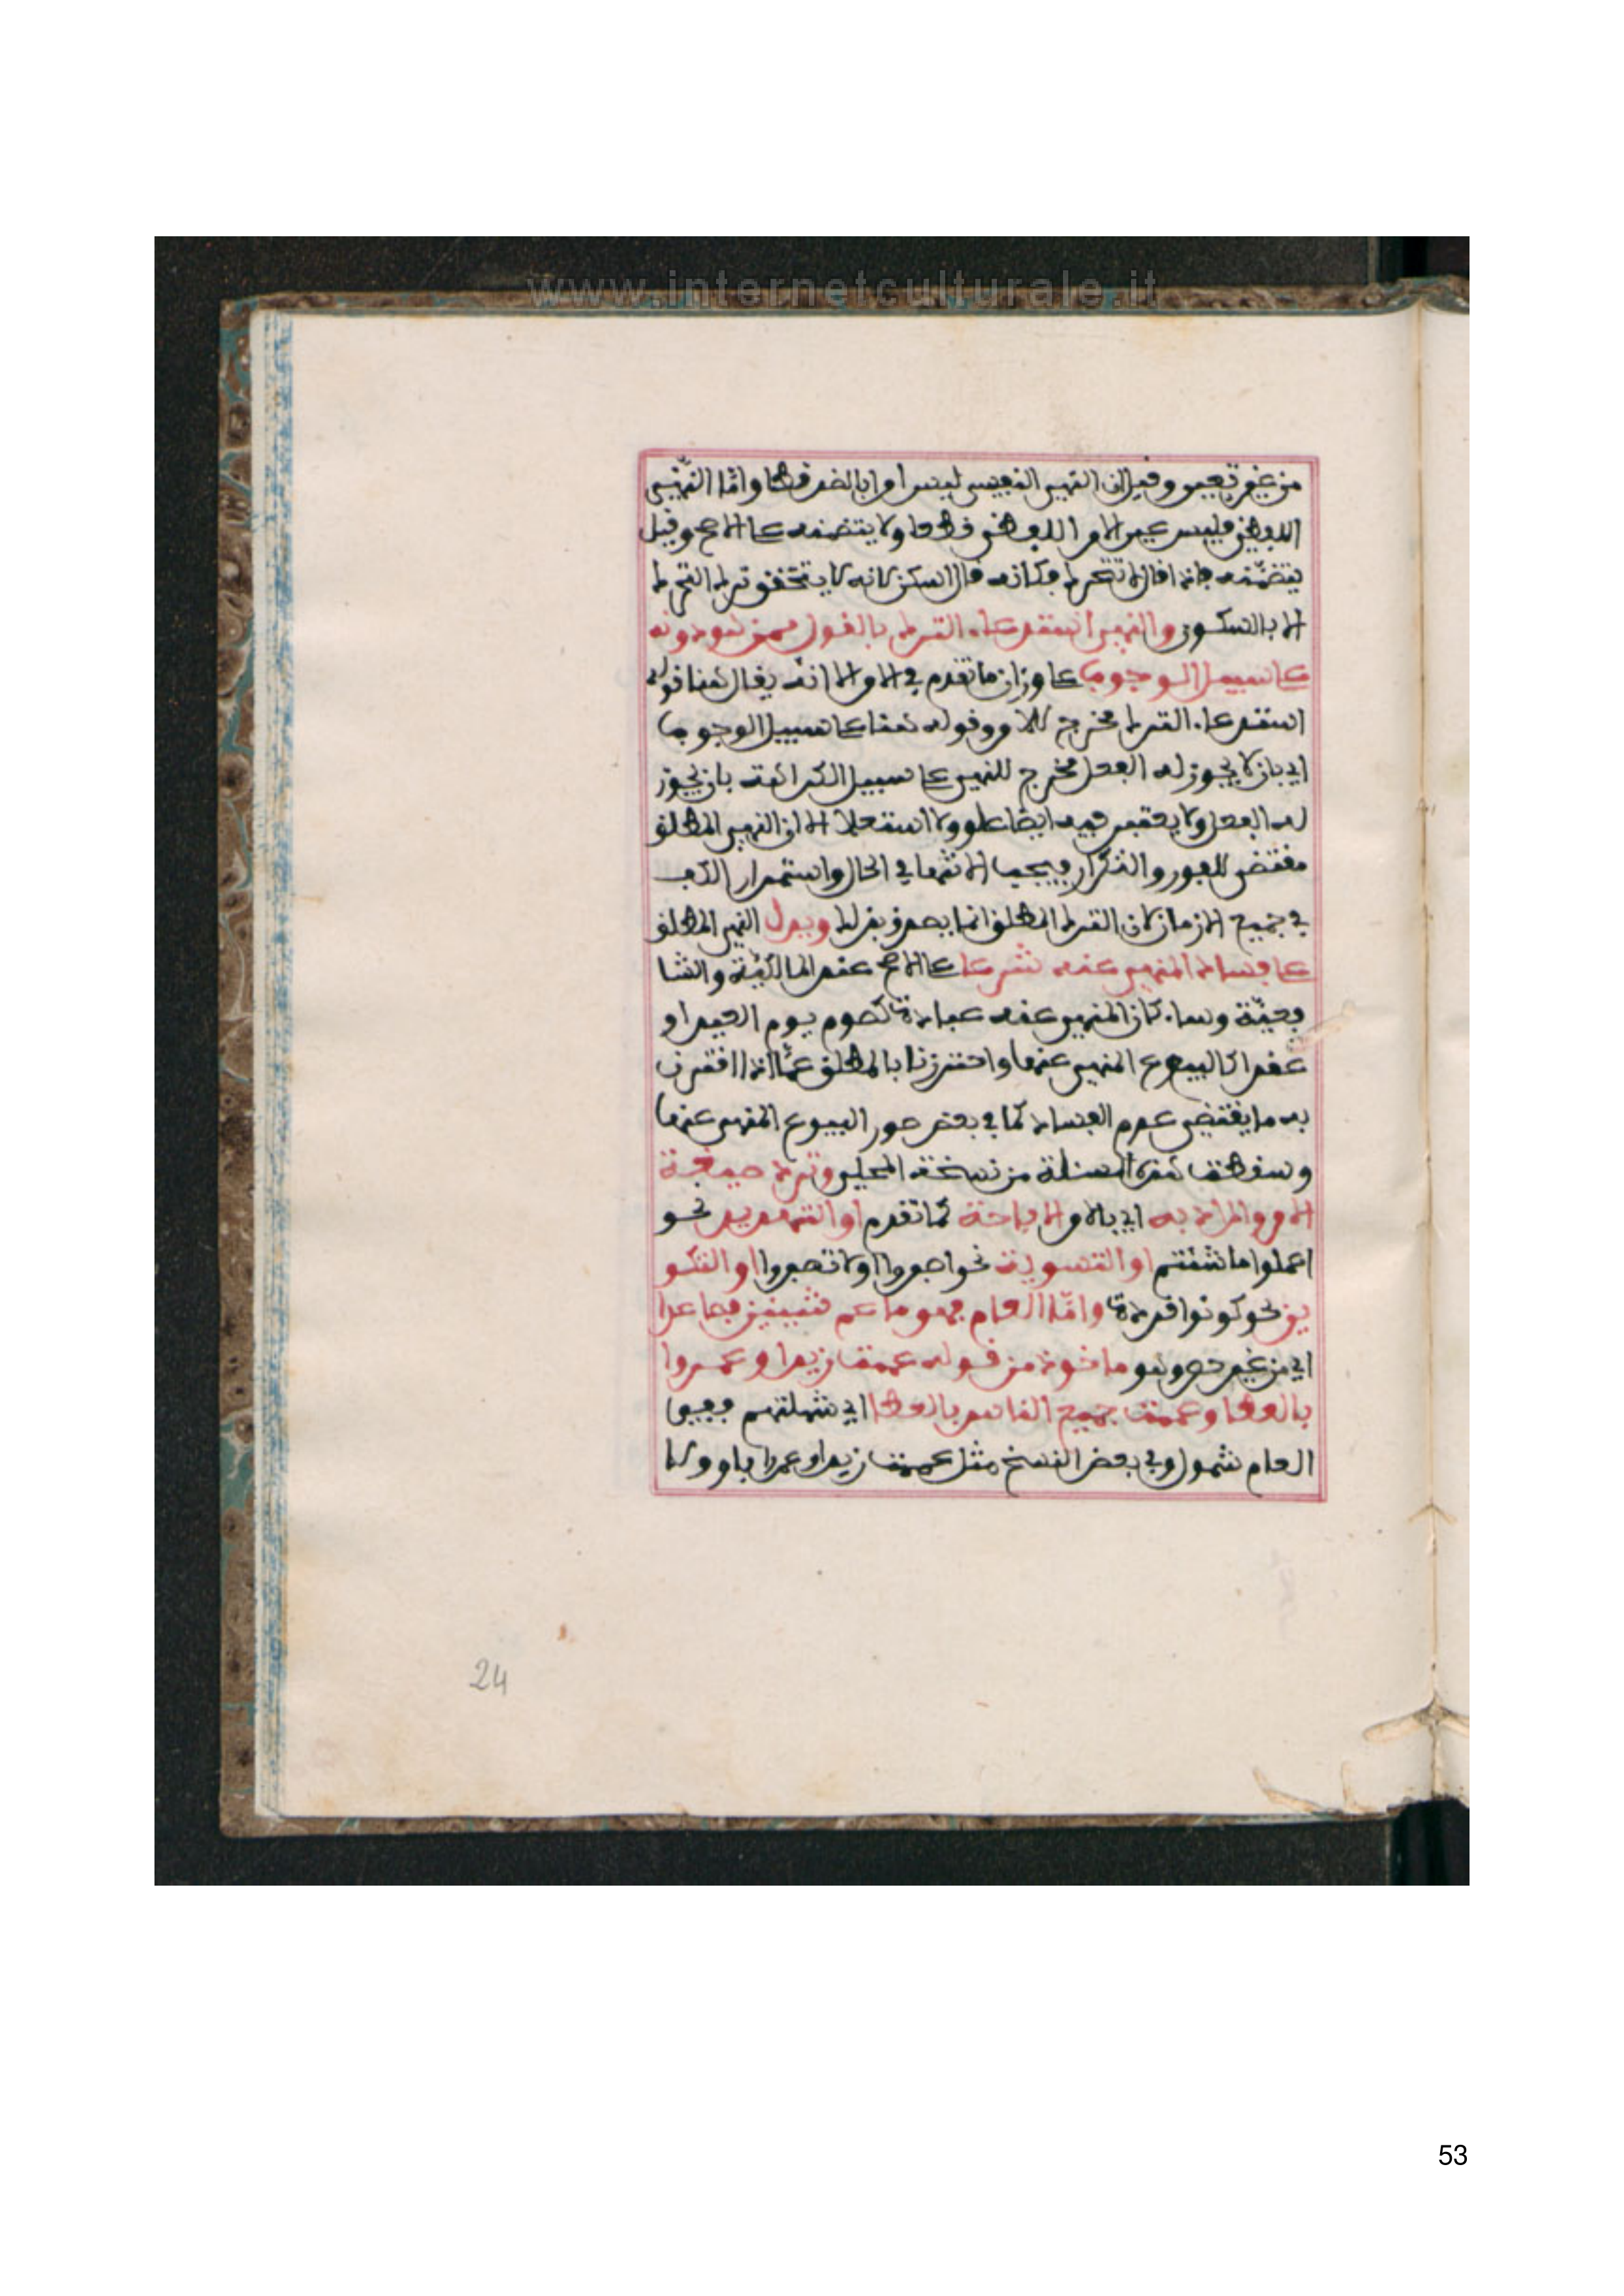 www.internetculturale.it
من غير تعيين وقيل ان النهي النفسي ليس امرا بالضد قطعا واما النهي
اللفظي فليس عين الامر اللفظي قطعا ولا يتضمنه على الاصح وقيل
يتضمنه فاذا قال لا تتحرك فكانه قال اسكن لانه لا يتحقق ترك التحرك
الا بالسكون والنهي استدعاء الترك بالقول ممن هو دونه
على سبيل الوجوب على وزان ما تقدم في الامر الا انه يقال هنا قوله
استدعاء الترك مخرج للامر وقوله هنا على سبيل الوجوب
اي بان لا يجوز له الفعل مخرج للنهي على سبيل الكراهة بان يجوز
له الفعل ولا يعتبر فيه ايضا علو ولا استعلا الا ان النهي المطلق
مقتض للفور والتكرار فيجب الانتها في الحال واستمرار الكف
في جميع الازمان لان الترك المطلق انما يصدق بذلك ويدل النهي المطلق
على فساد المنهي عنه شرعا على الاصح عند المالكية والشا
فعية وسواء كان المنهي عنه عبادة كصوم يوم العيد او
عقدا كالبيوع المنهي عنها واحترزنا بالمطلق عما اذا اقترن
به ما يقتضي عدم الفساد كما في بعض صور البيوع المنهي عنها
وسقطت هذه المسئلة من نسخة المحلي وترد صيغة
الامر والمراد به اي بالامر الاباحة كما تقدم او التهديد نحو
اعملوا ما شئتم او التسوية نحو اصبروا او لا تصبروا او التكو
ين نحو كونوا قردة واما العام فهو ما عم شيئين فصاعدا
اي من غير حصر وهو ماخوذ من قوله عممت زيدا وعمروا
بالعطا وعممت جميع الناس بالعطا اي شملتهم ففي
العام شمول وفي بعض النسخ مثل عممت زيدا وعمرا باوولا
24
53